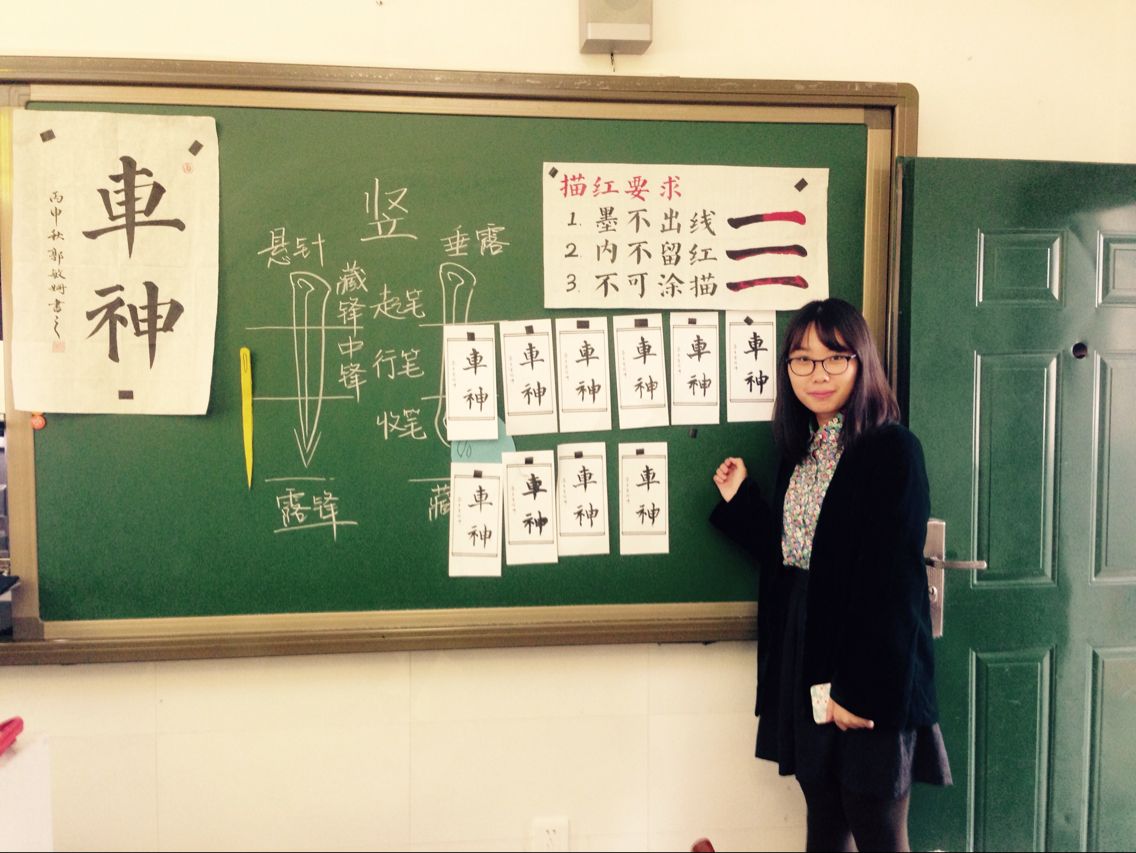 車神
丙申秋郭敏姍書之
竖
悬针
垂露
藏锋
中锋
起笔
行笔
收笔
露锋
藏
描红要求
1. 墨不出线
2. 内不留红
3. 不可涂描
車神
車神
車神
車神
車神
車神
車神
車神
車神
車神